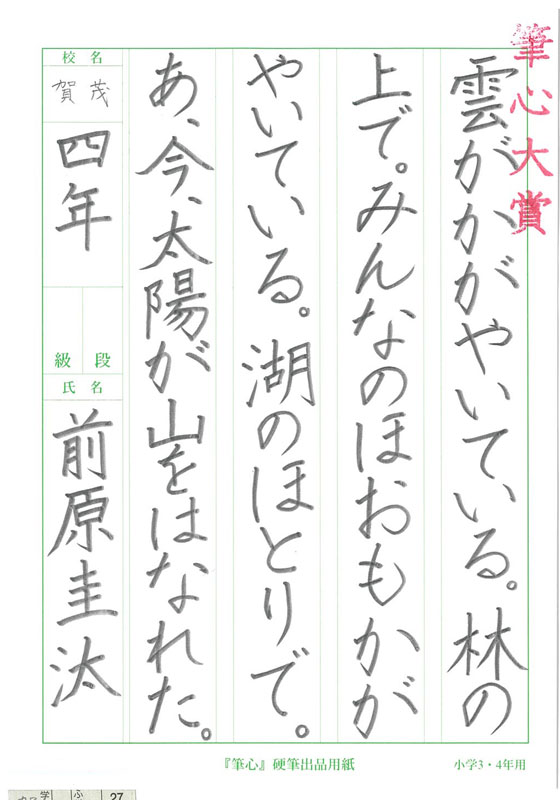 筆心大賞
雲がかがやいている。林の
上で。みんなのほおもかが
やいている。湖のほとりで。
あ、今、太陽が山をはなれた。
校名
賀茂
四年
段
級
氏名
前原圭汰
『筆心』硬筆出品用紙
小学3・4年用
学
ふ
27